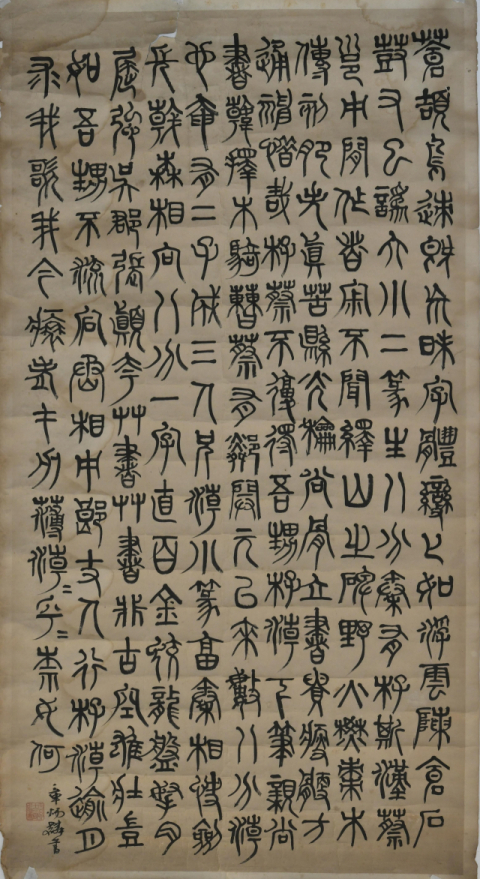 蒼頡鳥跡既茫昧字體變化如浮雲陳倉石
鼓又已訛大小二篆生八分秦有李斯漢蔡
邕中間作者寂不聞繹山之碑野火焚棗木
傳刻肥失真苦縣光和尚骨立書貴瘦硬方
通神惜哉李蔡不復得吾甥李潮下筆親尚
書韓擇木騎曹蔡有鄰開元已來數八分潮
也奄有二子成三人況潮小篆逼秦相快劍
長戟森相向八分一字直百金蛟龍盤拏肉
屈強吳郡張顛夸艸書艸書非古空雄壯豈
如吾甥不流宕丞相中郎丈人行李潮逾月
求我歌我今衰老才力薄潮〻乎〻柰女何
章炳麟書